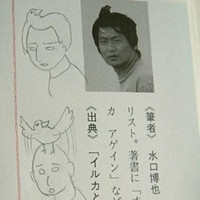 《筆者》 水口博也
リスト。著書に「オ
カ アゲイン」など
《出典》「イルカと